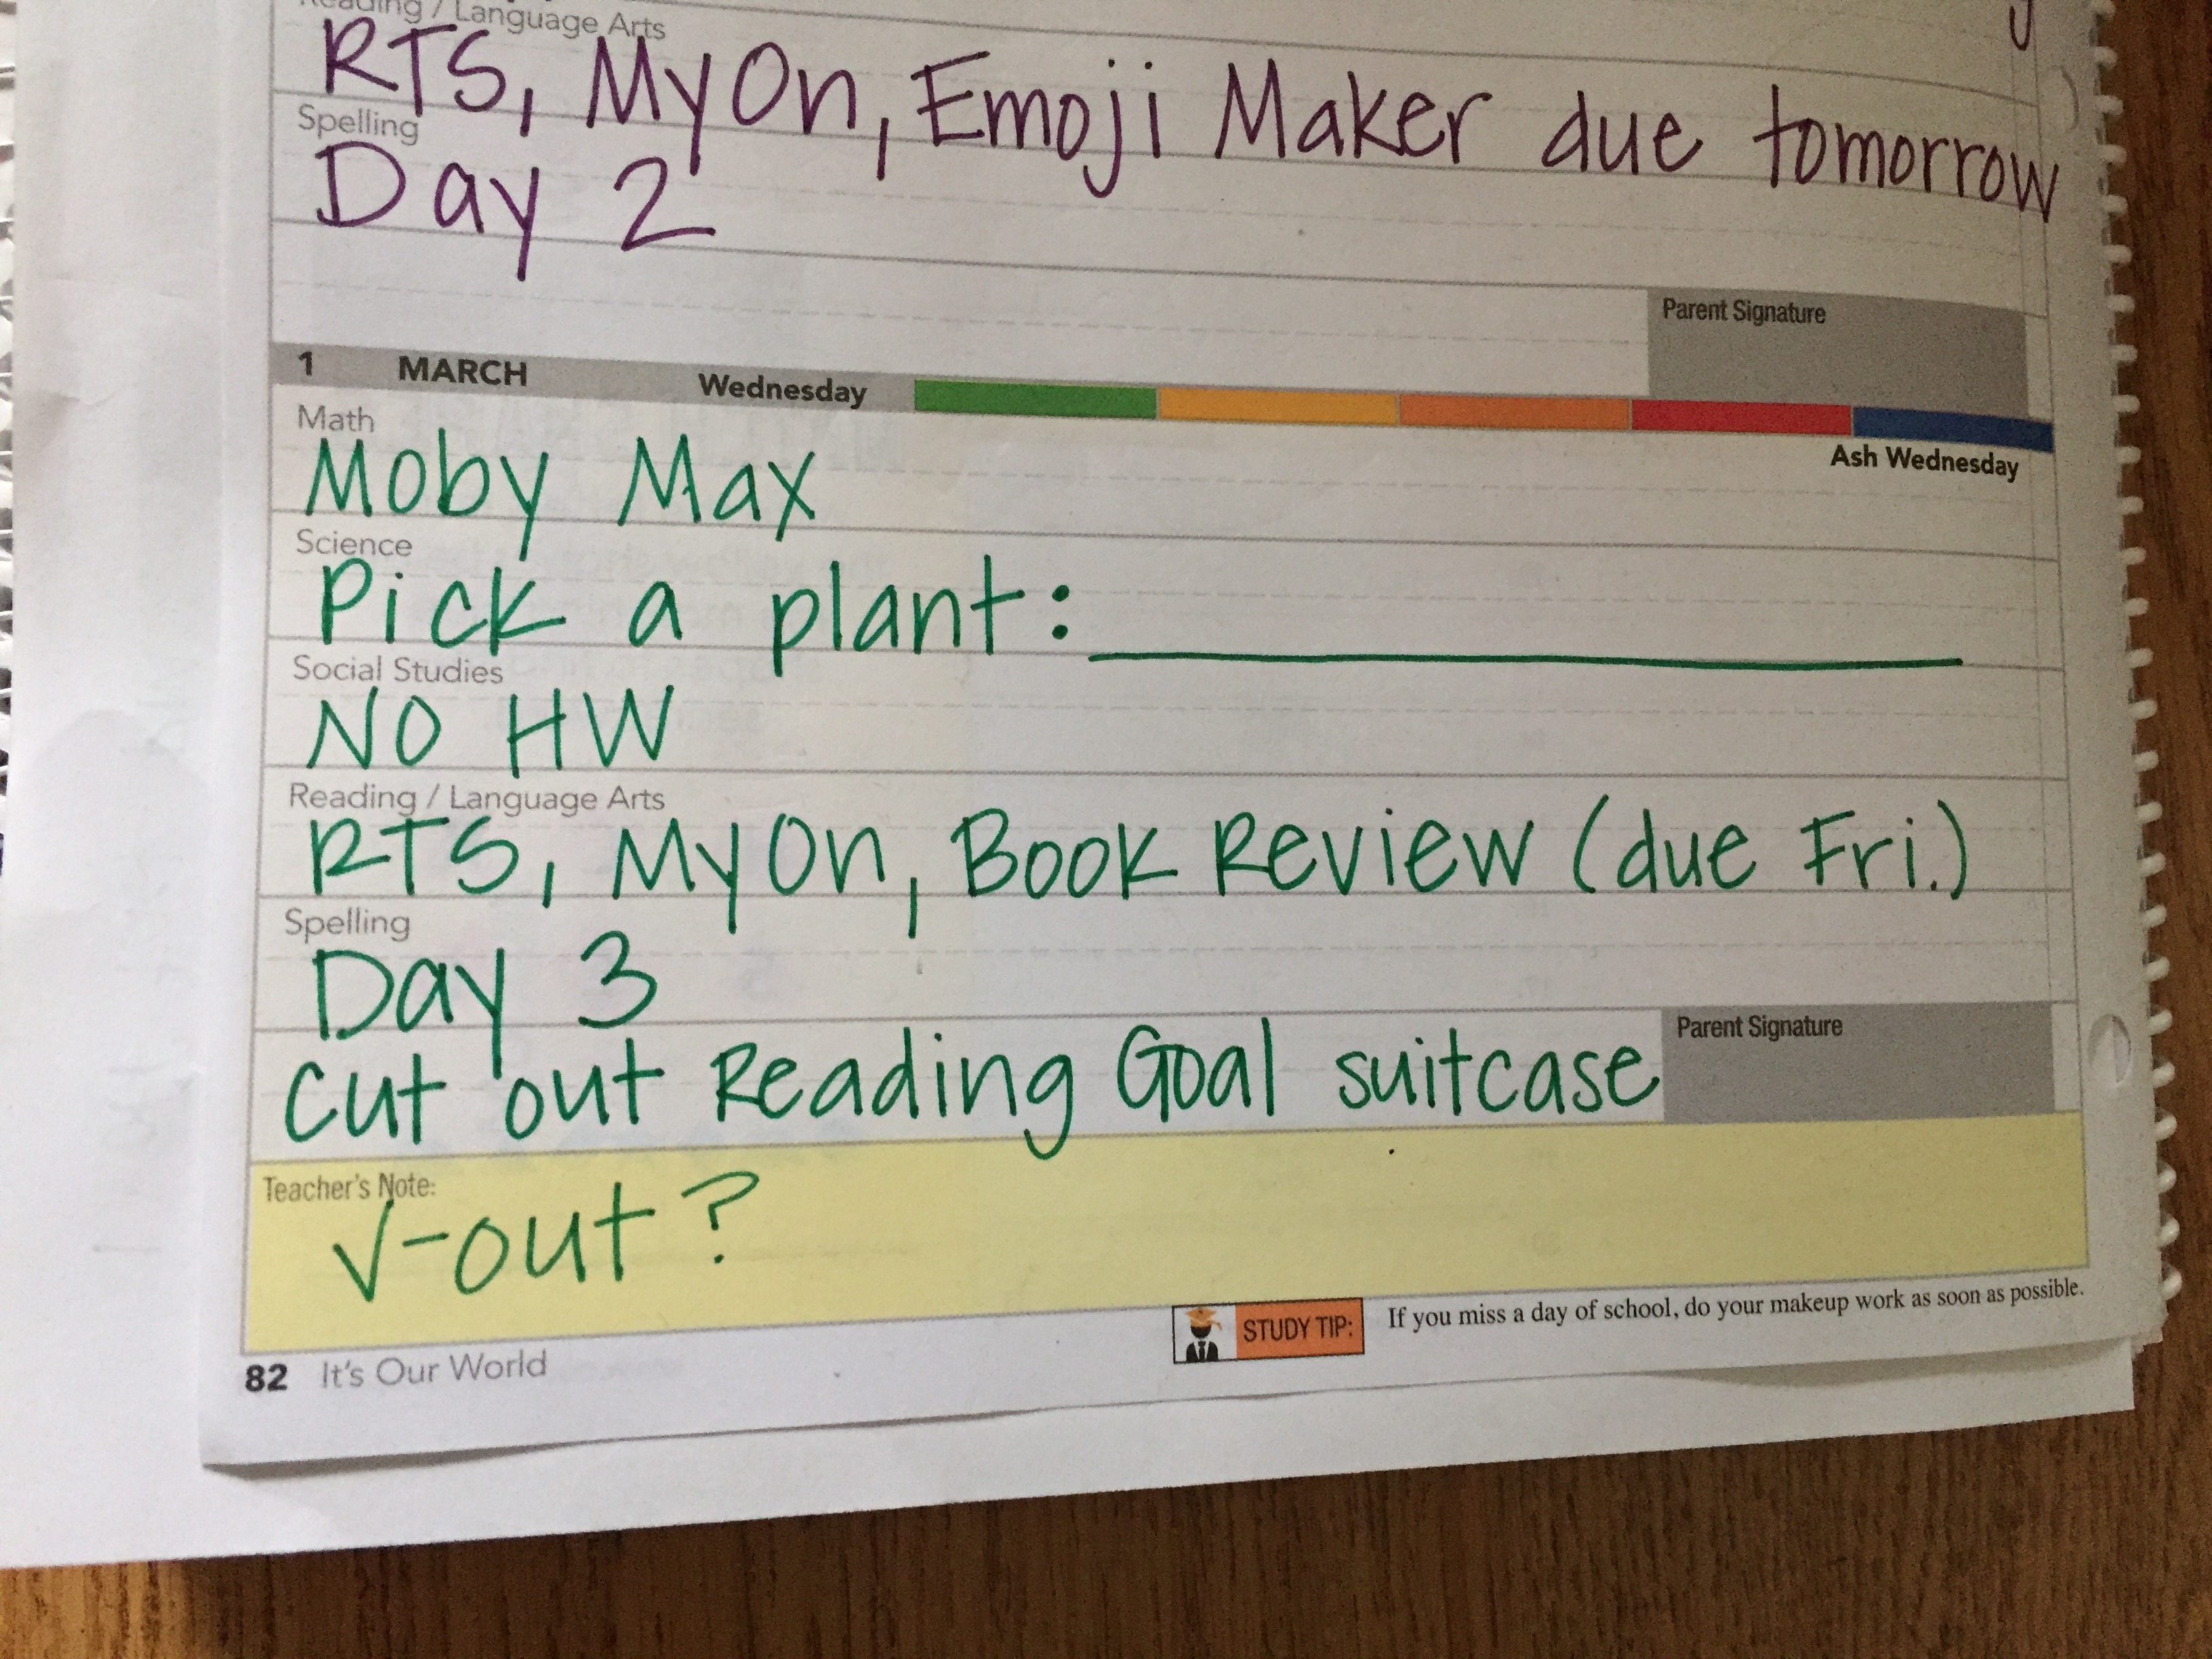 Reading / Language Arts
RTS, MyOn, Emoji Maker due tomorrow
Spelling
Day 2
Parent Signature
1 MARCH Wednesday
Ash Wednesday
Math
Moby Max
Science
Pick a plant:
Social Studies
NO HW
Reading / Language Arts
RTS, MyOn, Book Review (due Fri.)
Spelling
Day 3
Cut out Reading Goal suitcase
Parent Signature
Teacher's Note:
√-out?
STUDY TIP: If you miss a day of school, do your makeup work as soon as possible.
82 It's Our World